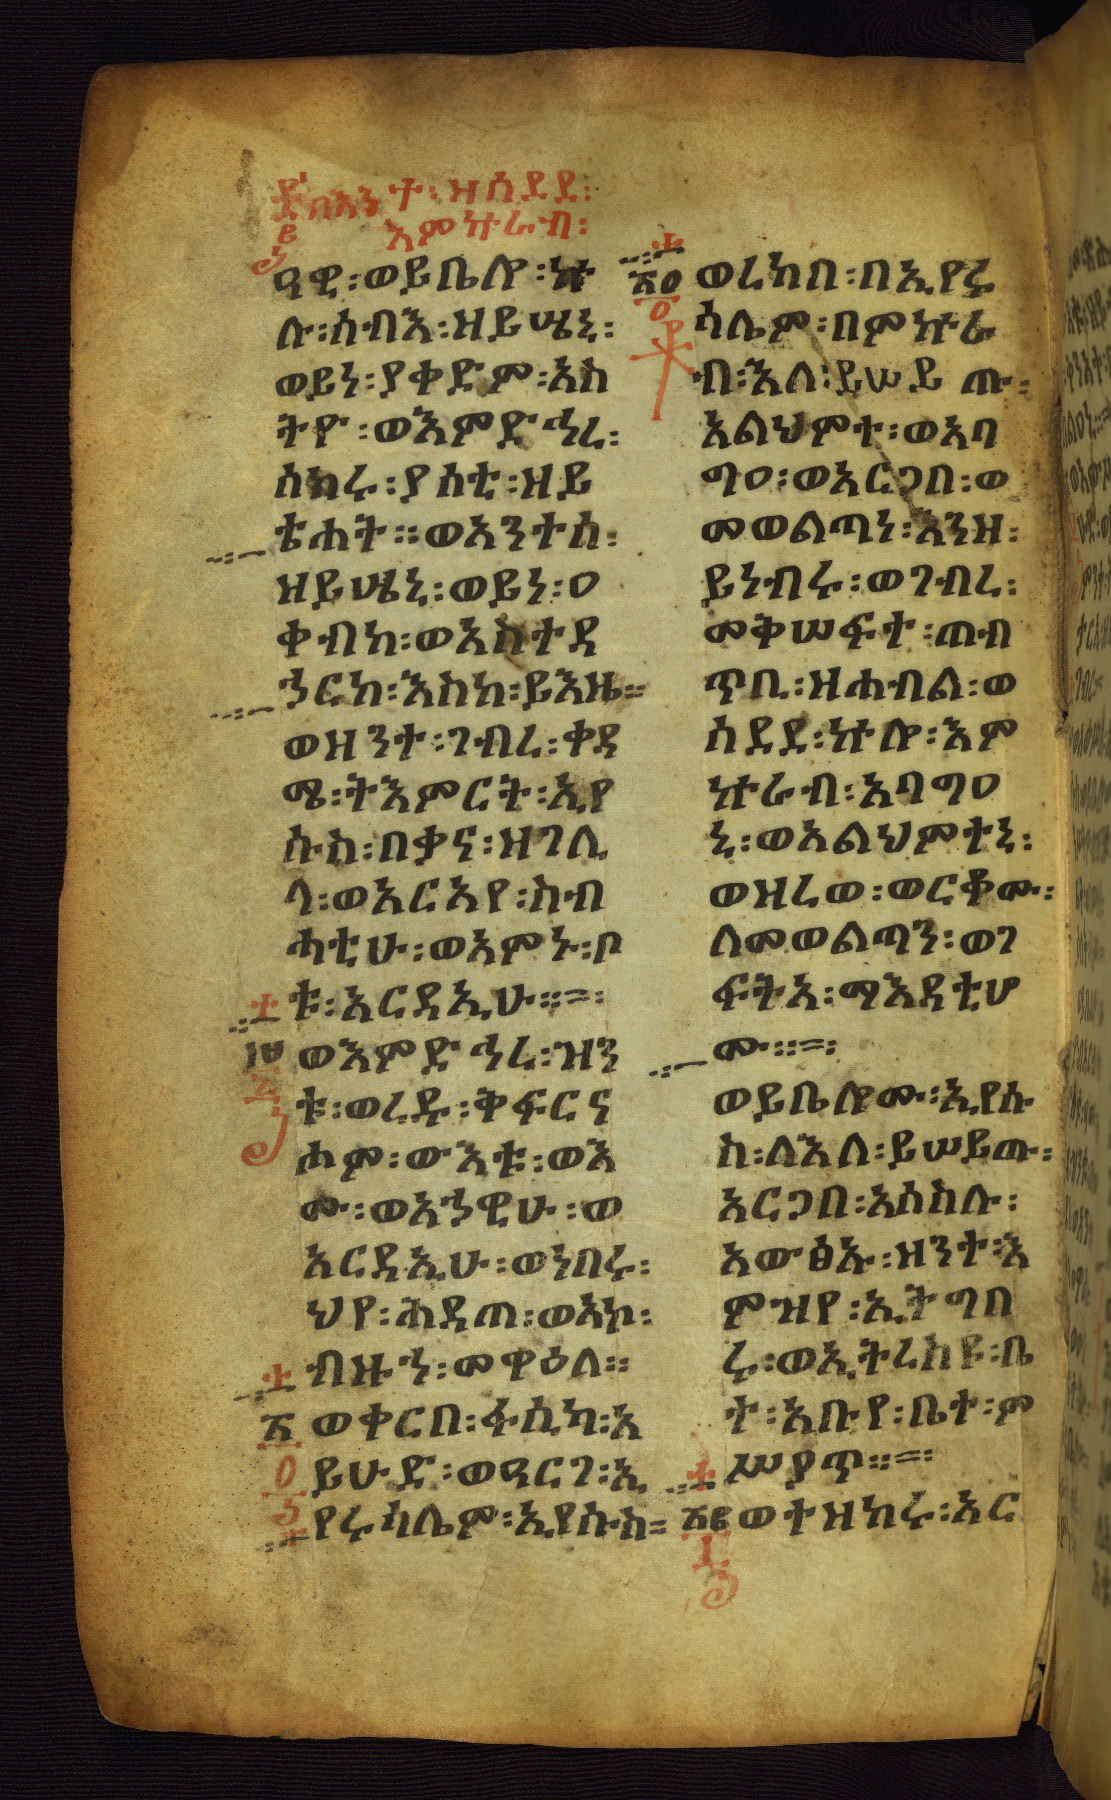 በእንተ፡ዘሰደደ፡
እምኵራብ፡
ዓዊ፡ወይቤሎ፡ኵ
ሉ፡ሰብእ፡ዘይሤኒ፡
ወይነ፡ያቀድም፡አስ
ትዮ፡ወእምድኅረ፡
ሰክሩ፡ያሰቲ፡ዘይ
ቴሐት።ወአንተሰ፡
ዘይሤኒ፡ወይነ፡ዐ
ቀብከ፡ወአስተዳ
ኀርከ፡እስከ፡ይእዜ።
ወዝንተ፡ገብረ፡ቀዳ
ሜ፡ትእምርት፡ኢየ
ሱስ፡በቃና፡ዘገሊ
ላ፡ወአርአየ፡ስብ
ሓቲሁ፡ወአምኑ፡ቦ
ቱ፡አርዳኢሁ።
፲፱ ወእምድኅረ፡ዝን
ቱ፡ወረዱ፡ቅፍርና
ሖም፡ውእቱ፡ወእ
ሙ፡ወአኀዊሁ፡ወ
አርዳኢሁ፡ወነበሩ፡
ህየ፡ሕዳጠ፡ወአኮ፡
ብዙኀ፡መዋዕለ።
፳ ወቀርበ፡ፋሲካ፡አ
ይሁድ፡ወዓርገ፡ኢ
የሩሳሌም፡ኢየሱስ።
፳፩ ወረከበ፡በኢየሩ
ሳሌም፡በምኵራ
ብ፡እለ፡ይሠይጡ፡
አልህምተ፡ወአባ
ግዐ፡ወአርጋበ፡ወ
መወልጣነ፡እንዘ፡
ይነብሩ፡ወገብረ፡
መቅሠፍተ፡ጠብ
ጥቢ፡ዘሐብል፡ወ
ሰደደ፡ኵሎ፡እም
ኵራብ፡አባግዐ
ኒ፡ወአልህምተኒ፡
ወዘረወ፡ወርቆሙ፡
ለመወልጣን፡ወገ
ፍትአ፡ማእዳቲሆ
ሙ።
ወይቤሎሙ፡ኢየሱ
ስ፡ለእለ፡ይሠይጡ፡
አርጋበ፡አሰስሉ፡
አውፅኡ፡ዘንተ፡እ
ምዝየ፡ኢትግበ
ሩ፡ወኢትረስዩ፡ቤ
ተ፡አቡየ፡ቤተ፡ም
ሥያጥ።
፳፪ ወተዘከሩ፡አር